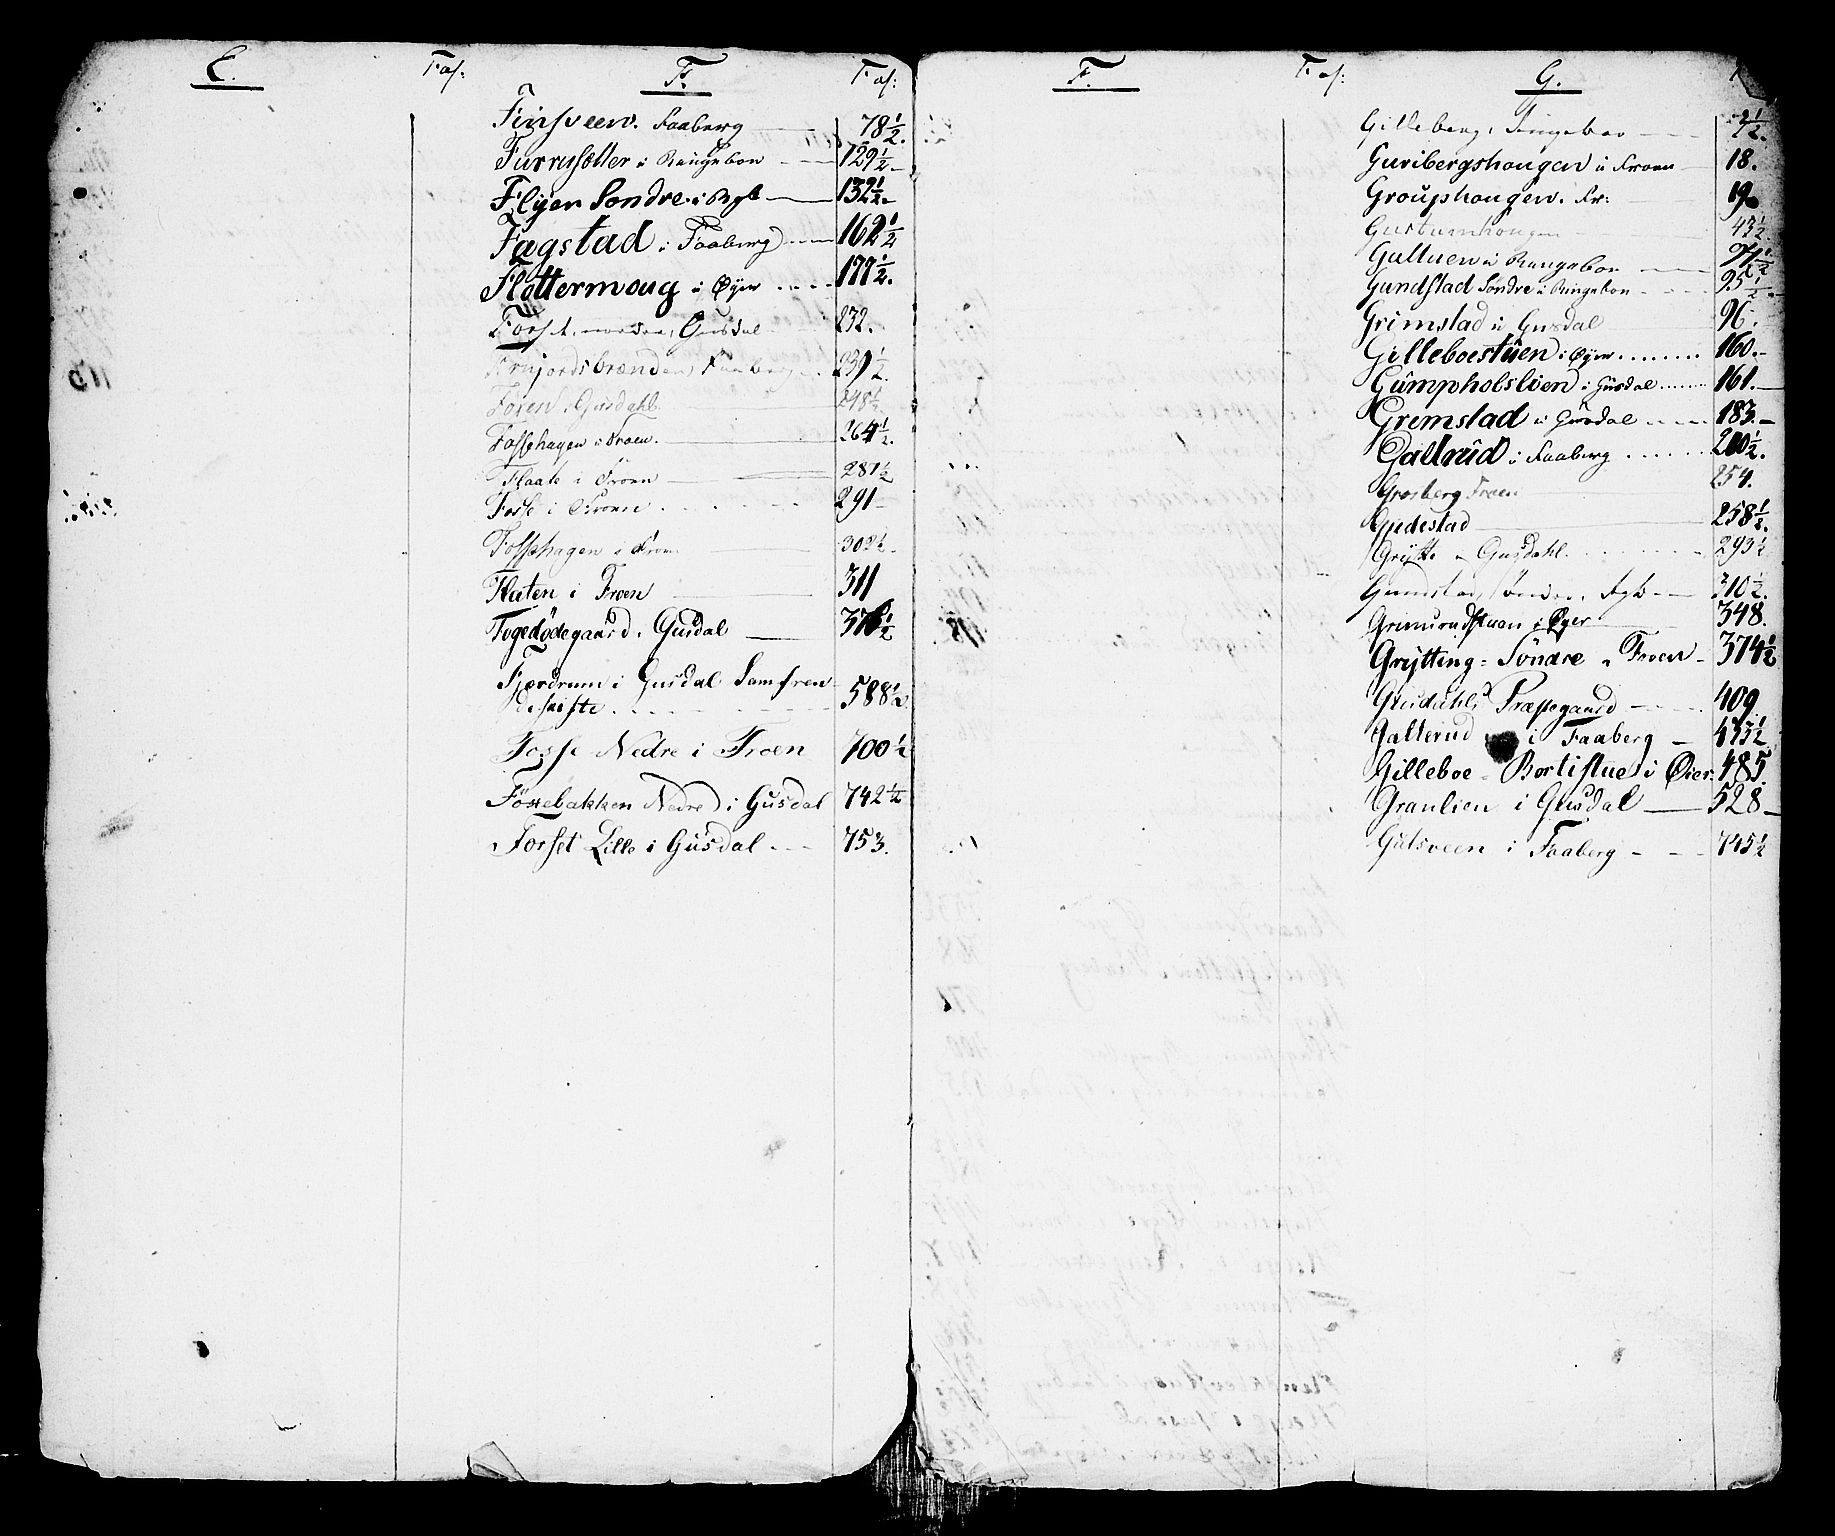 E.
Fol:
F.
Fol:
Finsveen. Faaberg 78½.
Furrusætter i Ringeboe 129½
Flyen Søndre i 132½
Fagstad i Faaberg 162½
Flottermoug i Øyer 177½.
Forset nordre, Gusdal 232.
Faaberg 239½.
Foren i Gusdahl 248½
Fossehagen i Froen. 264½.
Flaate i Froen 287½
Fosse i Froen 291
Fossehagen i Froen 302½
Flaten i Froen 311
Fogedødegaard i Gusdal 376½
Fjerdrum i Gusdal Samfren
deskifte 588½
Fosse Nedre i Froen 700½
Nedre i Gusdal 742½
Forset Lille i Gusdal 753.
F.
Fol:
G.
Gilleberg i Ringeboe
Guribergshougen i Froen 18.
Grouphougen. Fr: 19
43½.
i Ringeboe
Gundstad Søndre i Ringeboe 95½.
Grimstad i Gusdal 96.
Gilleboestuen i Øyer 160.
Gumpholslien i Gusdal 161.
Gremstad i Gusdal 183.
Galtrud i Faaberg 200½.
Grosberg Froen 254.
Gjedestad 258½.
Grytte i Gusdahl 293½
Gundstad, Søndre, 310½.
i Øyer 348.
Grytting Søndre i Froen 374½
Gusdahls Præstegaard 409
Galterud i Faaberg 473½
Gilleboe Bortistue i Øier 485.
Granlien i Gusdal 528
Gutsveen i Faaberg 745½